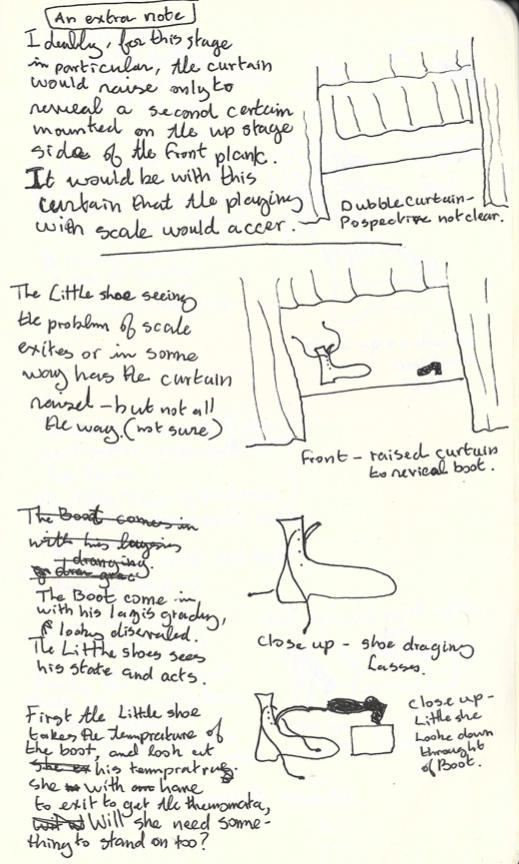 An extra note
Ideally, for this stage
in particular, the curtain
would raise only to
reveal a second certain
mounted on the up stage
side of the front plank.
It would be with this
curtain that the playing
with scale would accer.
Dubble curtain -
Pospective not clear.
The Little shoe seeing
the problem of scale
exites or in some
way has the curtain
raised - but not all
the way. (not sure)
Front - raised curtain
to revical boot.
The Boot comes in
with his
dranging.
The Boot come in,
with his grading,
looks
The Little shoes sees
his state and acts.
Close up - shoe draging
Lasses.
First the Little shoe
takes the tempratture of
the boot, and look at
his temprature.
she with have
to exit to get the themomata,
Will she need some-
thing to stand on too?
Close up -
Little she
Looke down
throught
of Boot.